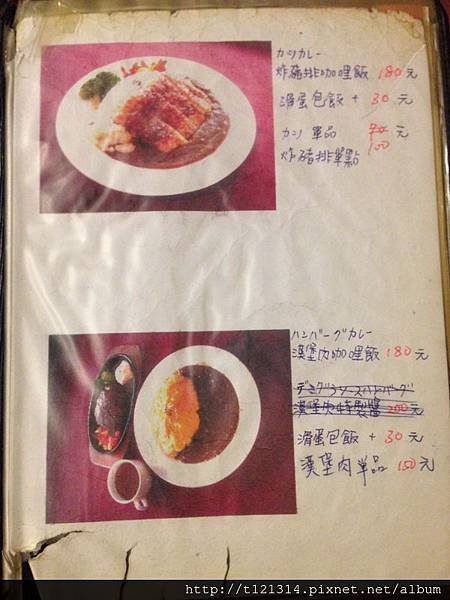 カツカレー
炸豬排咖哩飯 180元
滑蛋包飯 + 30元
カツ 單品 70元
100
炸豬排單點
ハンバーグカレー
漢堡肉咖哩飯 180元
デミグラソースハンバーグ
漢堡肉特製醬 200元
滑蛋包飯 + 30元
漢堡肉單品 150元
http://t121314.pixnet.net/album